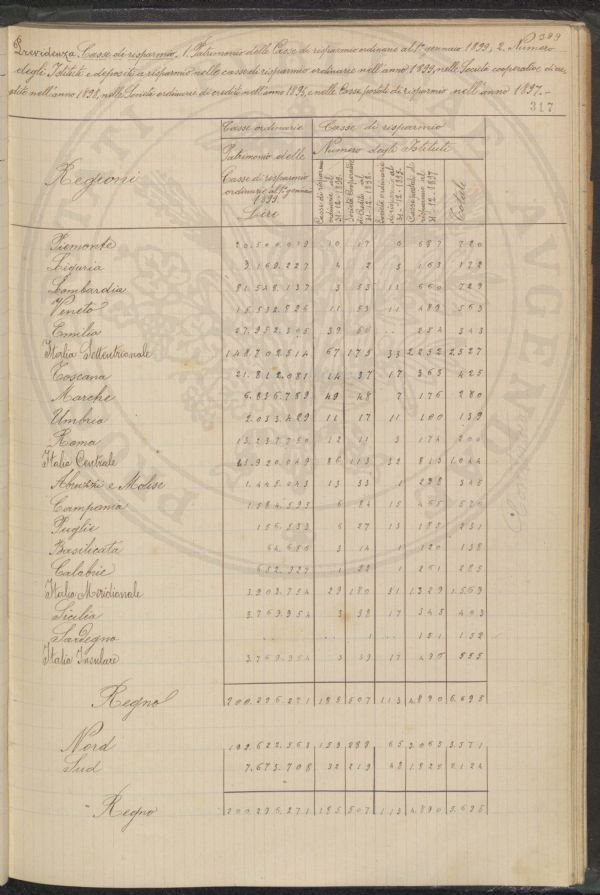 399
Previdenza. Casse di risparmio. 1. Patrimonio delle Casse di risparmio ordinarie al 1º gennaio 1899; 2. Numero
degli Istituti e depositi a risparmio nelle casse di risparmio ordinarie nell'anno 1899, nelle Società cooperative di cre-
dito nell'anno 1898, nelle Società ordinarie di credito nell'anno 1899, e nelle Casse postali di risparmio nell'anno 1897.-
317
Casse ordinarie Casse di risparmio
Patrimonio delle Numero degli Istituti
Regioni
Casse di risparmio
ordinarie al 1º gennaio
1899
Lire
Casse di risparmio ordinarie al 31-12-1899
Società Cooperative di Credito al 31-12-1898
Società ordinarie di credito al 31-12-1899
Casse postali di risparmio al 31-12-1897
Totale
Piemonte 20.500.019 10 17 6 687 720
Liguria 3.169.227 4 2 3 163 172
Lombardia 81.548.137 3 53 13 660 729
Veneto 15.532.826 11 53 11 489 563
Emilia 27.952.305 39 50 .. 254 343
Italia Settentrionale 148.702.514 67 175 33 2252 2527
Toscana 21.812.081 14 37 17 365 425
Marche 6.836.789 49 48 7 176 280
Umbria 2.033.429 11 17 11 100 139
Roma 13.237.750 12 11 3 174 200
Italia Centrale 43.920.049 86 113 32 813 1.044
Abruzzi e Molise 1.445.043 13 33 1 298 345
Campania 1.584.595 6 84 15 465 570
Puglie 156.533 6 27 13 185 231
Basilicata 64.686 3 14 1 120 138
Calabrie 652.327 1 22 1 261 285
Italia Meridionale 3.903.754 29 180 31 1329 1.569
Sicilia 3.769.954 3 38 17 345 403
Sardegna .. .. 1 .. 151 152
Italia Insulare 3.769.954 3 39 17 496 555
Regno 200.296.271 185 507 113 4890 5.695
Nord 192.622.563 153 288 65 3.065 3.571
Sud 7.673.708 32 219 48 1.825 2.124
Regno 200.296.271 185 507 113 4890 5.695